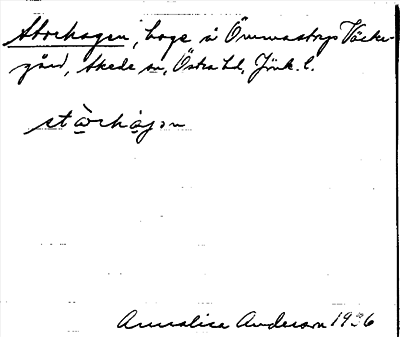 Storhagen, hage å Ömmestorps Väster-
gård, Skede sn, Östra hd, Jönk. l.
stòrhágən
Annalisa Anderson 1936